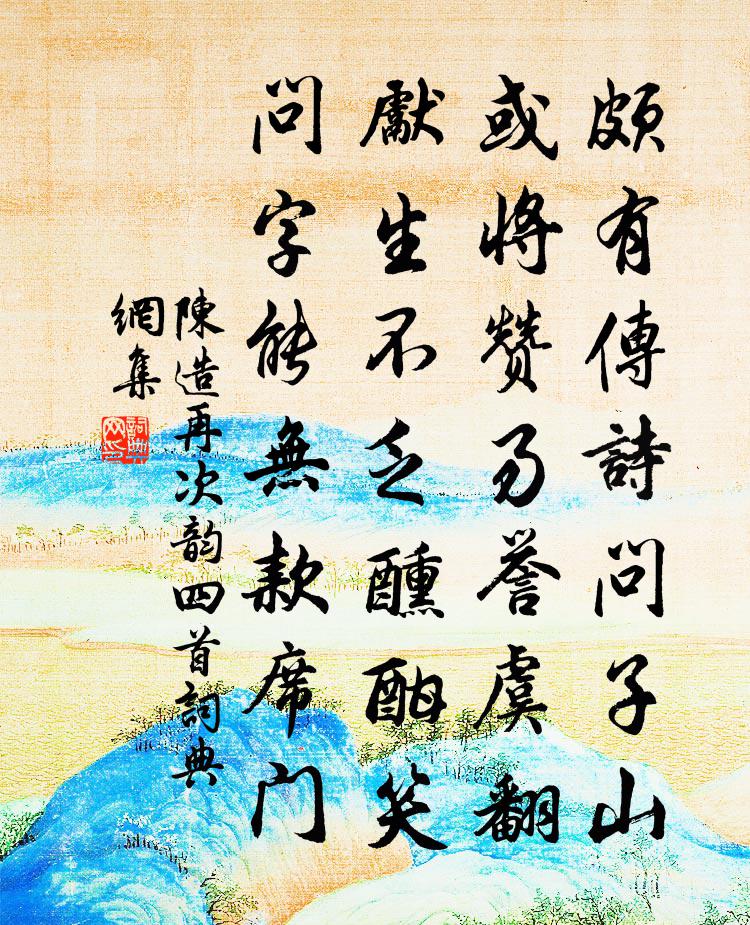 頗有傳詩問子山
或將贊易譽虞翻
獻生不乏醺酣笑
問字能無款席門
陳造再次韵四首詞典
網集